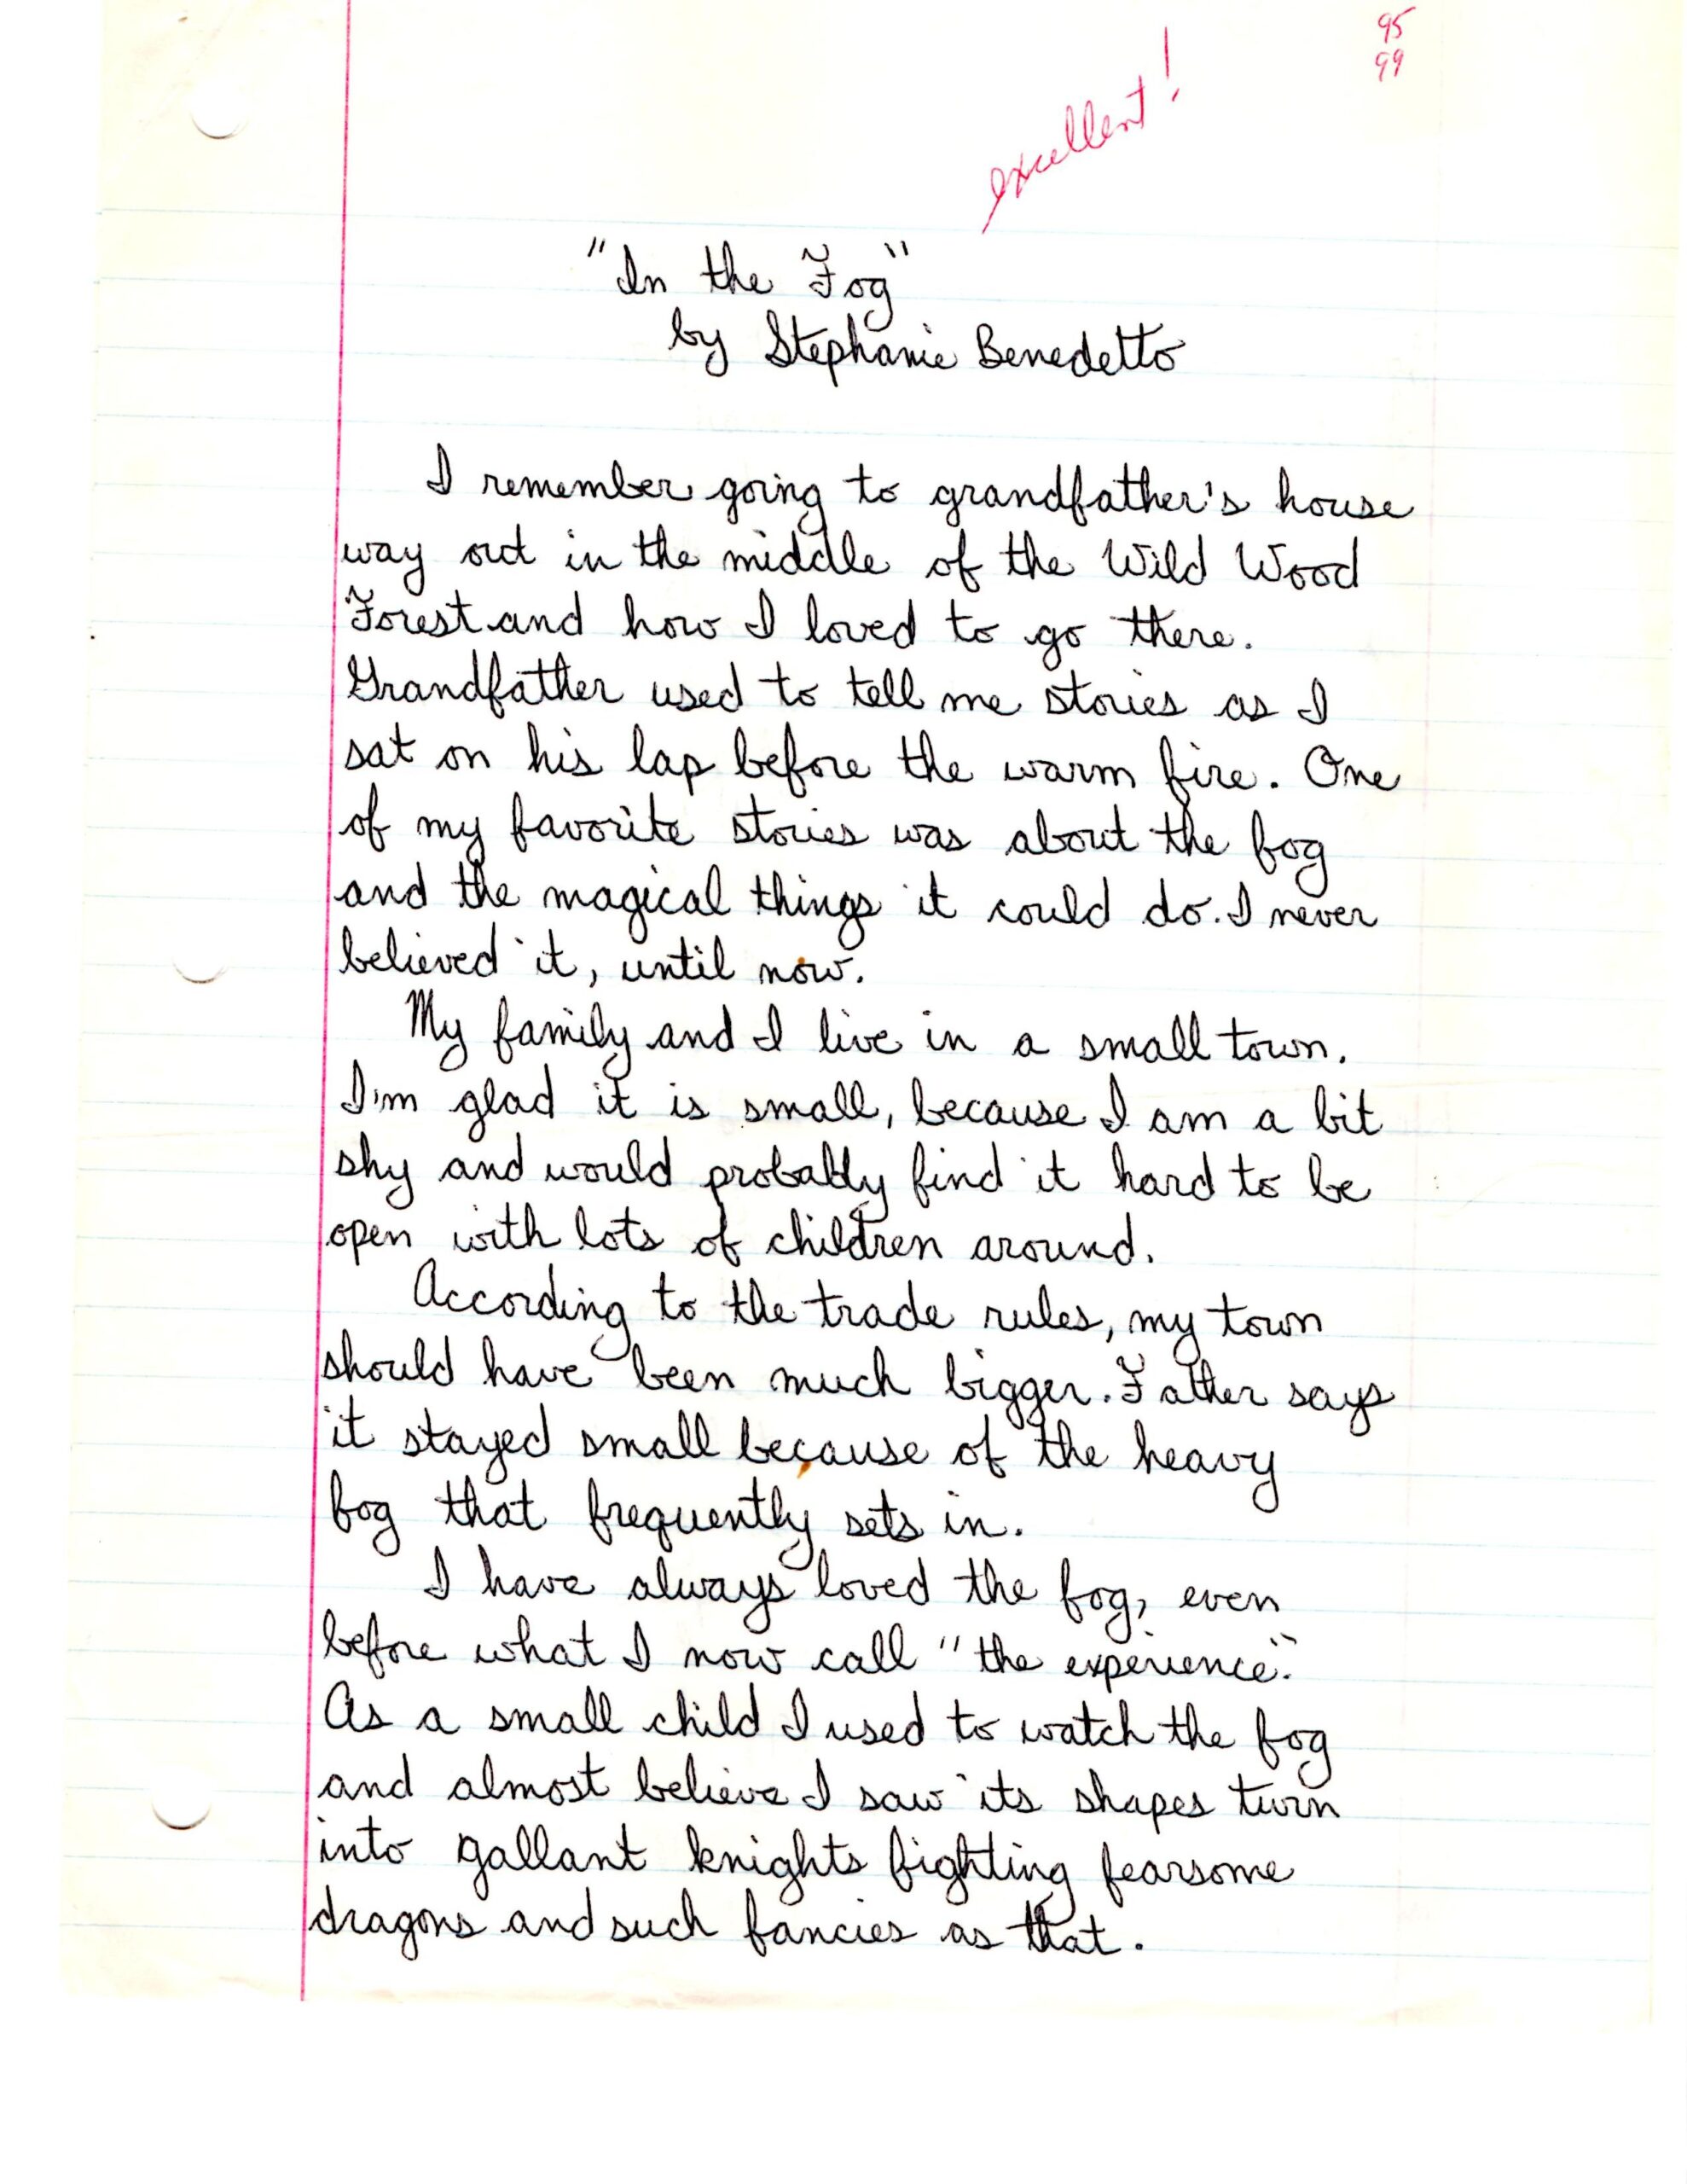 95
99
excellent!
"In the Fog"
by Stephanie Benedetto
I remember going to grandfather's house
way out in the middle of the Wild Wood
Forest and how I loved to go there.
Grandfather used to tell me stories as I
sat on his lap before the warm fire. One
of my favorite stories was about the fog
and the magical things it could do. I never
believed it, until now.
My family and I live in a small town.
I'm glad it is small, because I am a bit
shy and would probably find it hard to be
open with lots of children around.
According to the trade rules, my town
should have been much bigger. Father says
it stayed small because of the heavy
fog that frequently sets in.
I have always loved the fog, even
before what I now call "the experience."
As a small child I used to watch the fog
and almost believe I saw its shapes turn
into gallant knights fighting fearsome
dragons and such fancies as that.